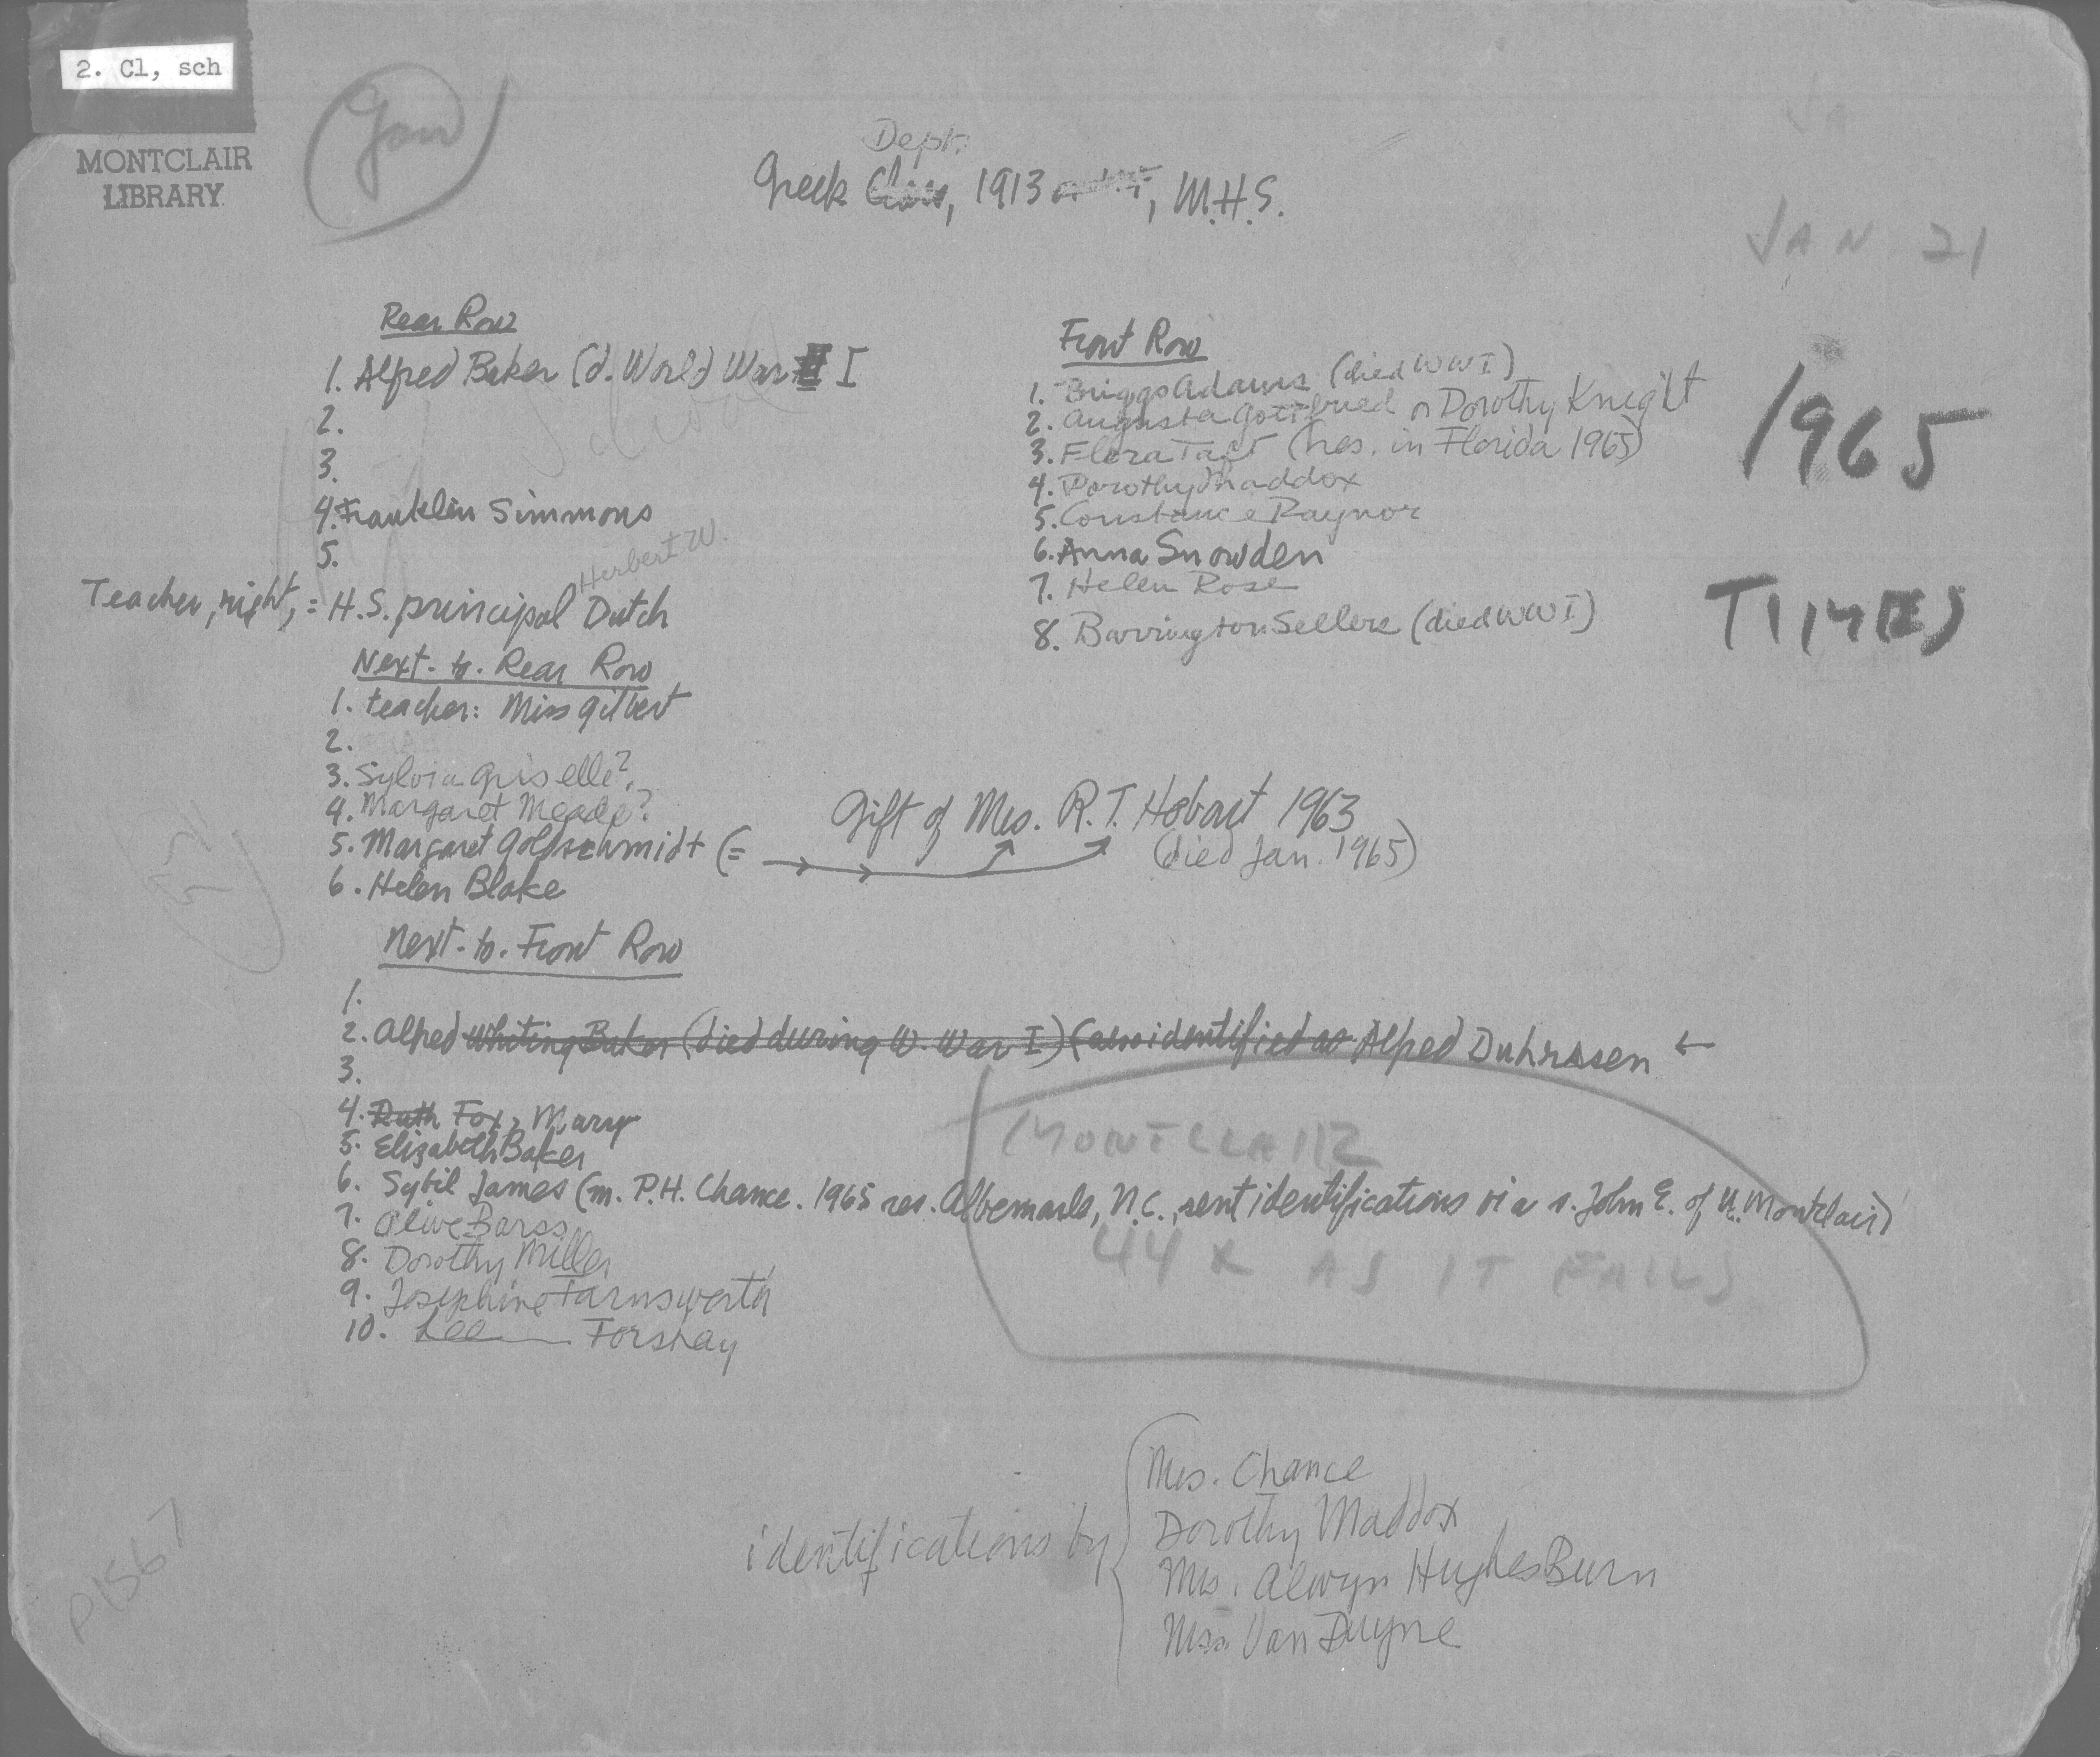 2. Cl, sch
MONTCLAIR
LIBRARY
Jan
Dept.
Greek Class, 1913, M.H.S.
JAN 21
1965
Rear Row
1. Alfred Baker (d. World War I
2.
3.
4. Franklin Simmons
5.
Herbert W.
Teacher, right, = H.S. principal Dutch
Next-to-Rear Row
1. teacher: Miss Gilbert
2.
3. Sylvia Griselle?
4. Margaret Meade?
5. Margaret Goldschmidt (=
6. Helen Blake
Gift of Mrs. R.T. Hobart 1963
(died Jan. 1965)
Next-to-Front Row
1.
2. Alfred Whiting Baker (died during W. War I) (also identified as Alfred Duhrssen ←
3.
4. Ruth Fox, Mary
5. Elizabeth Baker
6. Sybil James (m. P.H. Chance. 1965 res. Albemarle, N.C., sent identifications via s. John E. of U. Montclair)
7. Olive Barss
8. Dorothy Miller
9. Josephine Farnsworth
10. Lee Forshay
Front Row
1. Briggs Adams (died WWI)
2. Augusta Gottfried or Dorothy Knight
3. Flora Taft (res. in Florida 1965)
4. Dorothy Maddox
5. Constance Raynor
6. Anna Snowden
7. Helen Rose
8. Barrington Sellers (died WWI)
MONTCLAIR
44 X AS IT FALLS
identifications by
Mrs. Chance
Dorothy Maddox
Mrs. Alwyn Hughes Burn
Miss Van Duyne
P1567